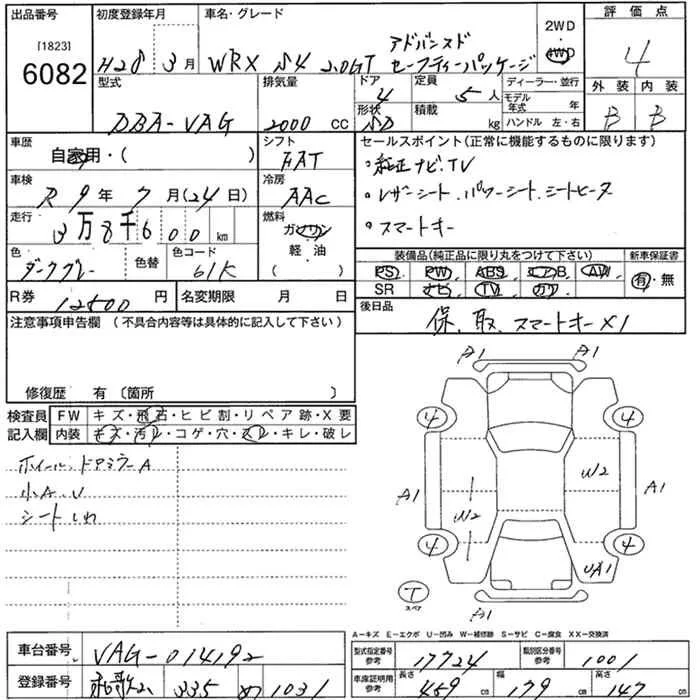 出品番号 初度登録年月 車名・グレード 2WD 評価点
[1823] アドバンスド
6082 H28年3月 WRX S4 2.0GT セーフティーパッケージ 4WD 4
型式 排気量 ドア 定員 ディーラー・並行 外装 内装
DBA-VAG 2000 cc 4 5人 モデル年式 年 B B
形状 積載 ハンドル 左・右
SD kg
車歴 シフト セールスポイント(正常に機能するものに限ります)
自家用・( ) FAT ・純正ナビ、TV
車検 冷房 ・レザーシート、パワーシート、シートヒータ
R9年7月(24日) AAC ・スマートキー
走行 燃料
3万8千600km ガソリン
色 色替 色コード 軽・油
ダークグレー 61K ( )
装備品(純正品に限り丸をつけて下さい) 新車保証書
PS PW ABS エアB AW 有・無
SR ナビ TV カワ
R券 12500円 名変期限 月 日
後日品
保、取、スマートキーX1
注意事項申告欄 (不具合内容等は具体的に記入して下さい)
修復歴 有 〔箇所 〕
検査員 FW キズ・飛石・ヒビ割・リペア跡・X要
記入欄 内装 キズ・汚レ・コゲ・穴・スレ・キレ・破レ
ホイール、ドアミラーA
小A、U
シートしわ
A1 A1
4 4
W2
A1 A1
W2
4 4
UA1
T
スペア
A1
A-キズ E-エクボ U-凹み W-補修跡 S-サビ C-腐食 XX-交換済
車台番号 VAG-014192
型式指定番号 参考 17724 類別区分番号 参考 1001
登録番号 和歌山 335 め 1031
車庫証明用 参考 長さ 459cm 幅 179cm 高さ 147cm